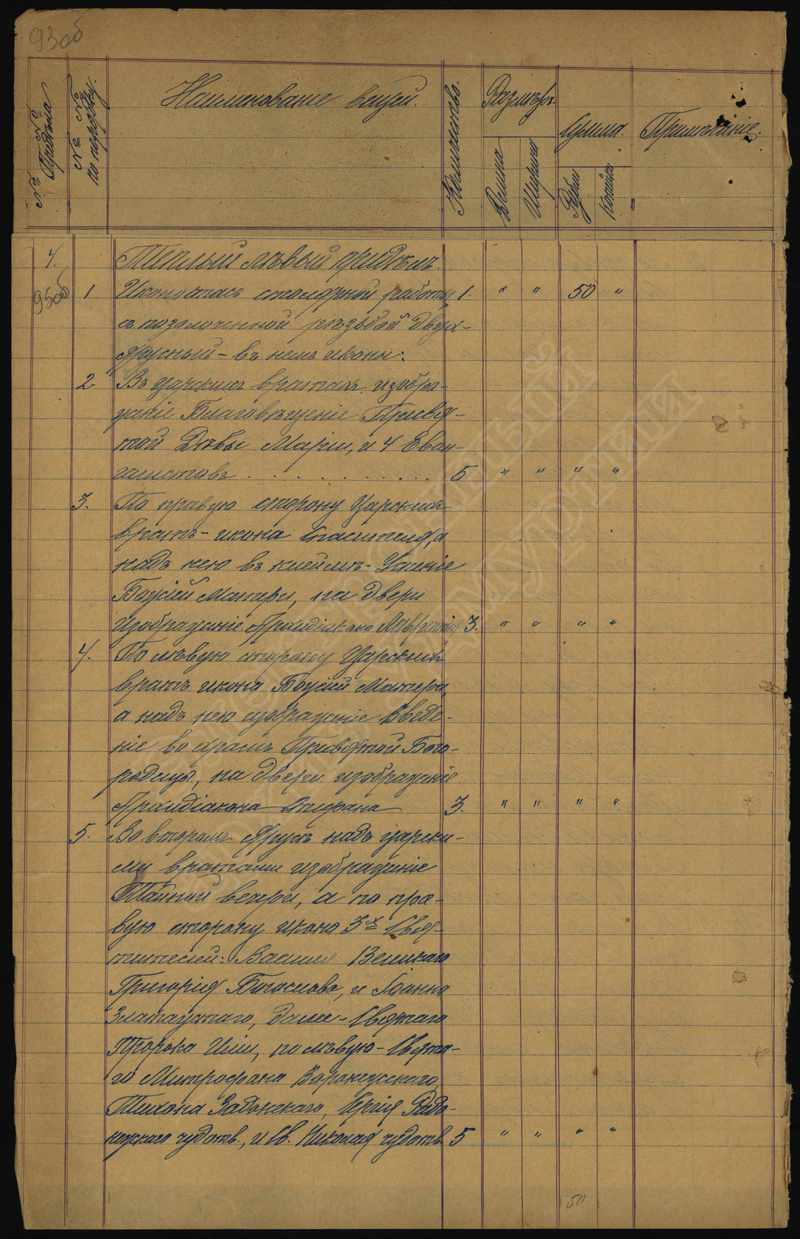 93об
№№ Придѣла
№ № по порядку.
Наименованіе вещей
Количество.
Размѣръ.
Длина
Ширина
Сумма.
Рубли
Копѣйк.
Примѣчаніе.
4. Теплый лѣвый придѣлъ.
95об 1 Иконостасъ столярной работы, 1 " " 50 "
съ позолоченной рѣзьбой двухъ-
ярусный – въ немъ иконы:
2 Въ царскихъ вратахъ изобра-
женіе Благовѣщеніе Пресвя-
той Дѣвы Маріи, и 4 Еван-
гелистовъ . . . . . . . . . . . 5 " " " "
3. По правую сторону Царскихъ
вратъ – икона Спасителя, а
надъ нею въ клеймѣ – Успеніе
Божіей Матери, на двери
изображеніе Архидіакона Лаврентія 3. " " " "
4. По лѣвую сторону Царскихъ
вратъ икона Божіей Матери,
а надъ нею изображеніе Введе-
ніе во храмъ Пресвятой Бого-
родицы, на двери изображеніе
Архидіакона Стефана 3. " " " "
5. Во второмъ ярусѣ надъ царски-
ми вратами изображеніе
Тайной вечери, а по пра-
вую сторону икона 3х Свя-
тителей: Василія Великаго
Григорія Богослова, и Іоанна
Златоустаго, далее – Святаго
Пророка Иліи, по лѣвую – Свята-
го Митрофана Воронежскаго,
Тихона Задонскаго, Сергія Радо-
нежскаго чудотв., и Св. Николая чудотв. 5 " " " "
50